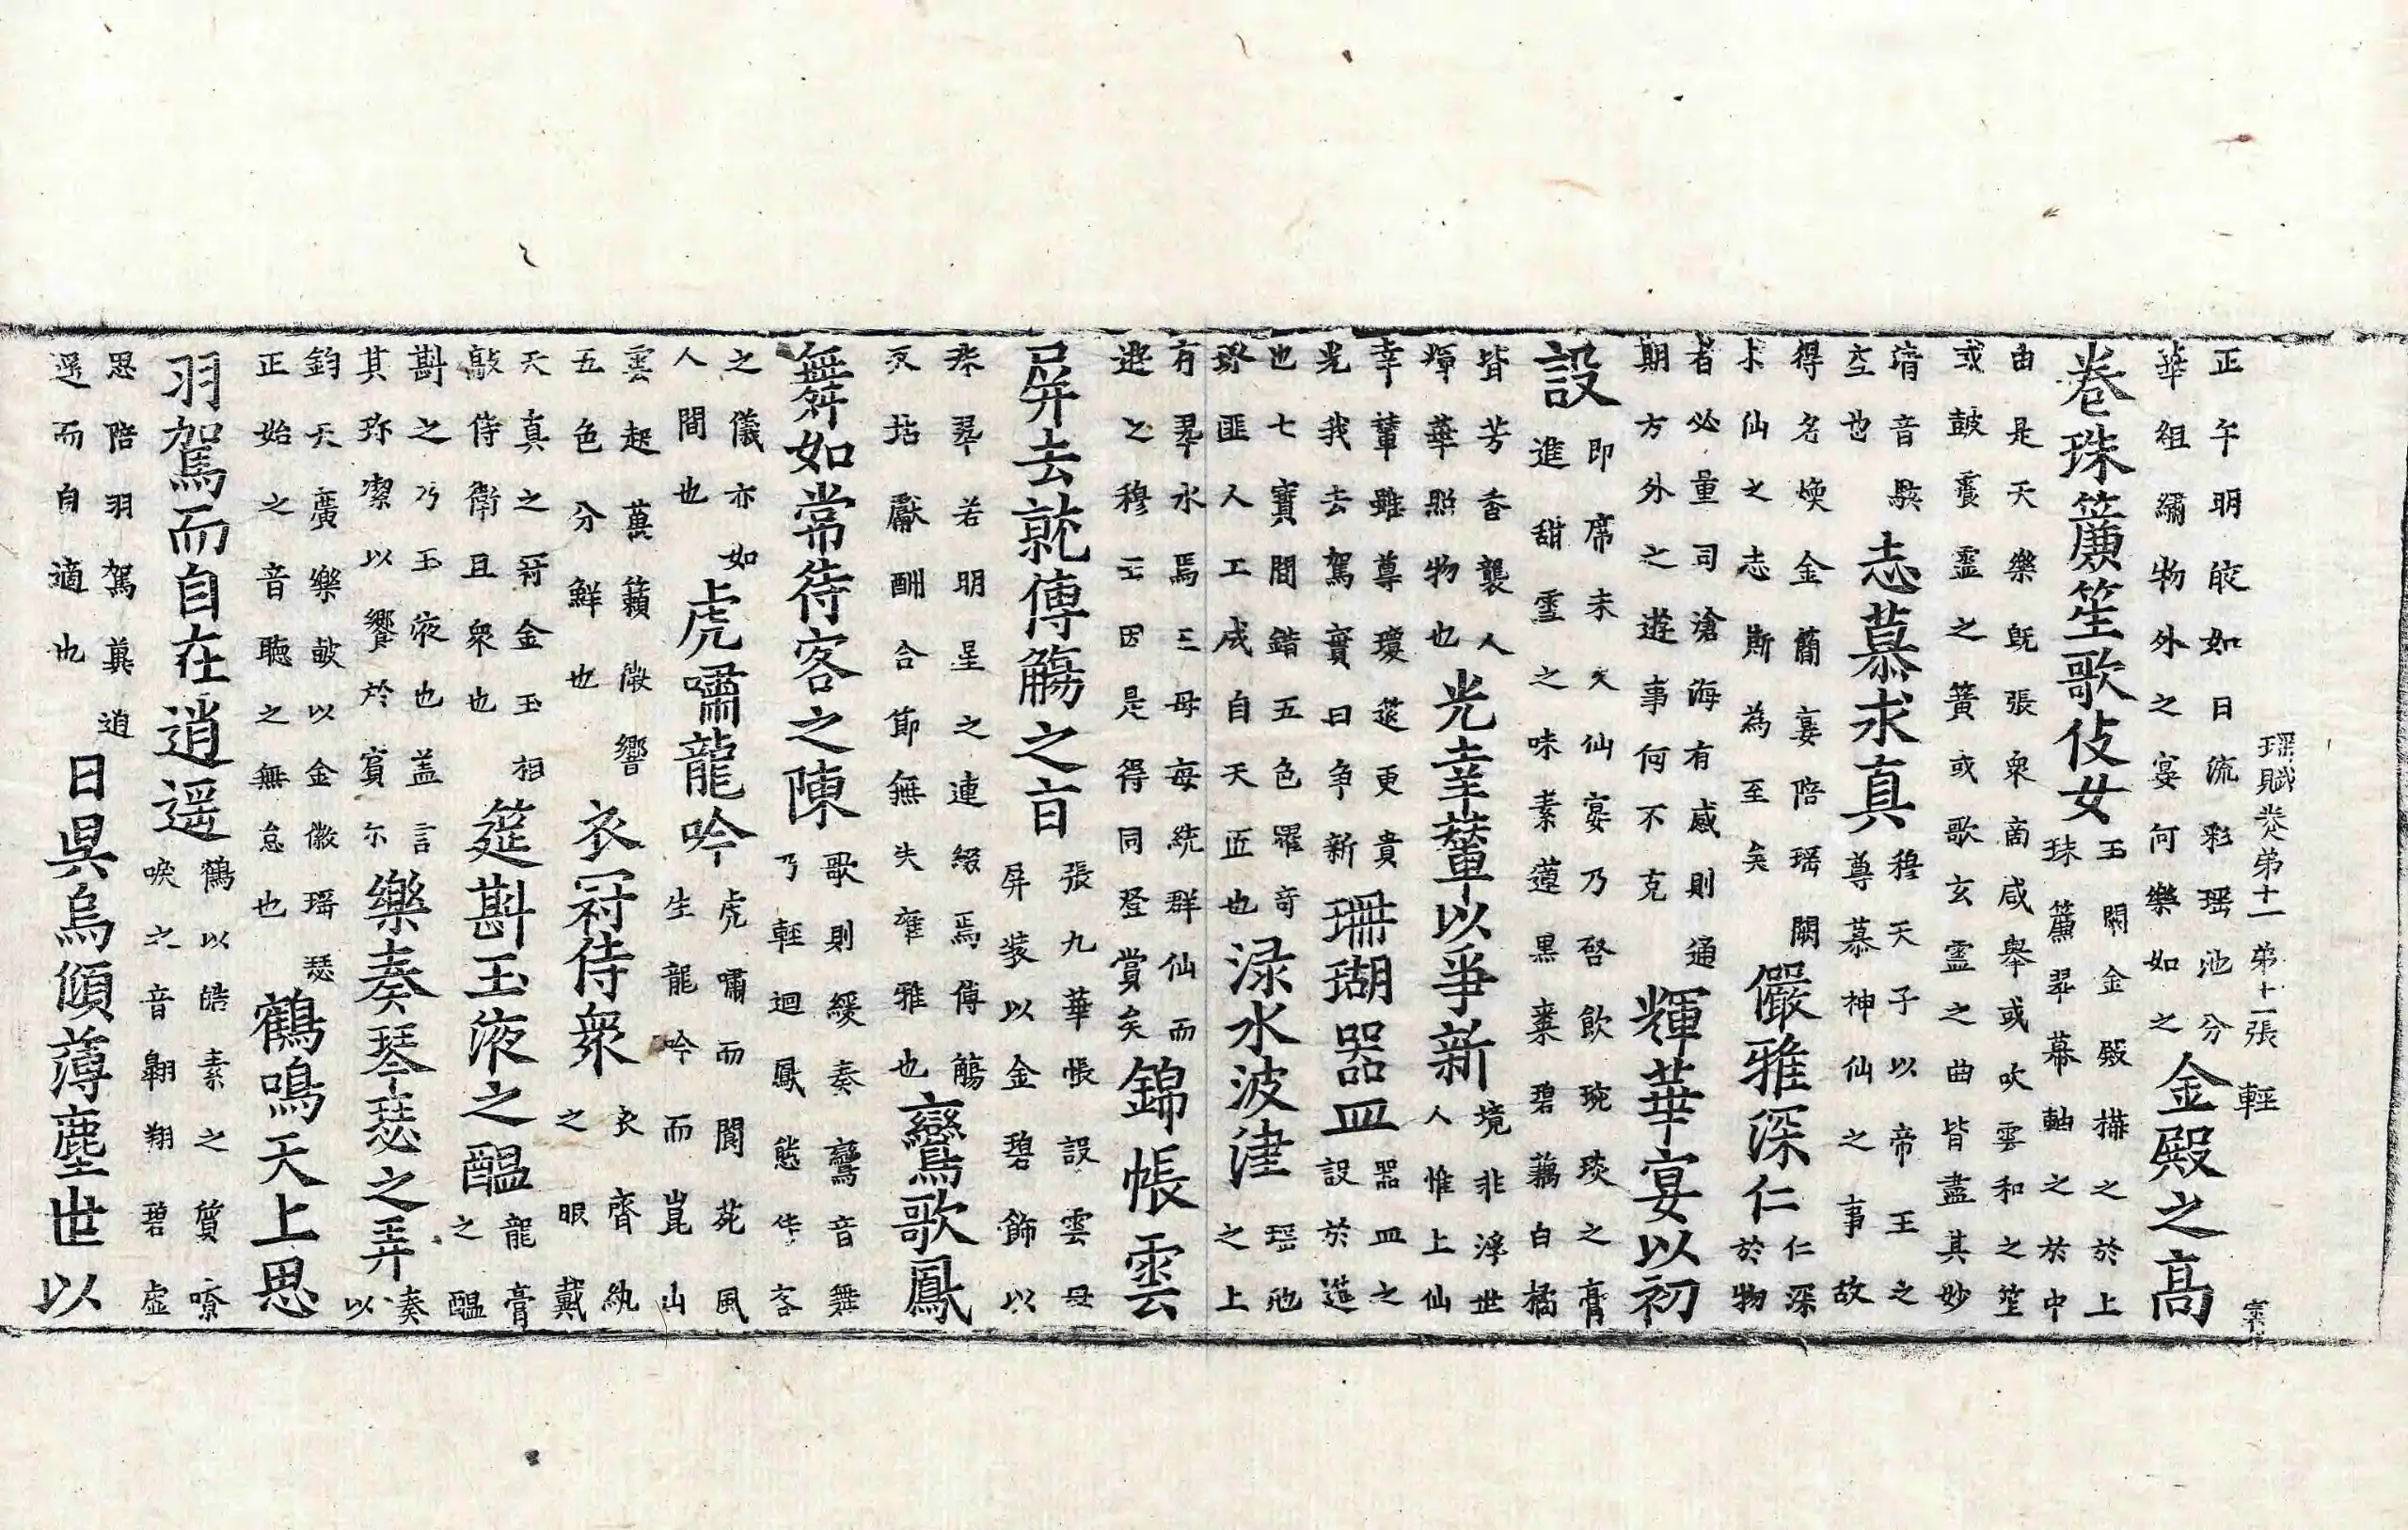 瑶賦卷第十一 第十一張 輕
正午明皎如日流彩瑶池分
華組繡物外之宴何樂如之
金殿之高
卷珠簾笙歌伎女
玉閣金殿攢之於上
珠簾翠幕軸之於中
由是天樂旣張衆啇咸舉或吹雲和之笙
或鼓靈之簧或歌玄靈之曲皆盡其妙
清音與
左也
志慕求真
穆天子以帝王之
尊慕神仙之事故
得名煥金簡宴陪瑶闕
求仙之志斯為至矣
儼雅深仁
仁深
於物
者必量司滄海有感則通
期方外之遊事何不克
輝華宴以初
設
即席未久仙宴乃啓飲琬琰之膏
進甜雪之味素蓮黑棗碧藕白橘
皆芳香襲人
煇華照物也
光幸輦以爭新
境非浮世
人惟上仙
幸輦雖尊瓊筵更貴
光我去駕實曰争新
珊瑚器皿
器皿之
設於筵
也七寶間錯五色羅奇
珎匪人工成自天匠也
淥水波津
瑶池
之上
有翠水焉王母每統群仙而
遊之穆王因是得同登賞矣
錦帳雲
屏去就傳觴之旨
張九華帳設雲母
屏装以金碧飾以
珠翠若明星之連綴焉傳觴
反坫獻酬合節無失雍雅也
鸞歌鳳
舞如常待客之陳
歌則緩奏鸞音舞
乃輕迴鳳態待客
之儀亦如
人間也
虎嘯龍吟
虎嘯而閬苑風
生龍吟而崑山
雲起萬籟微響
五色分鮮也
衣冠侍衆
衣齊紈
之服戴
天真之冠金玉相
敲侍衛且衆也
筵斟玉液之醞
龍膏
之醞
斟之乃玉液也盖言
其珎潔以饗於賓尒
樂奏琴瑟之弄
奏
以
鈞天廣樂敲以金徽瑶瑟
正始之音聴之無怠也
鶴鳴天上思
羽駕而自在逍遥
鶴以皓素之質嘹
唳之音翱翔碧虚
思陪羽駕真逍
遥而自適也
日吳烏傾薄塵世以